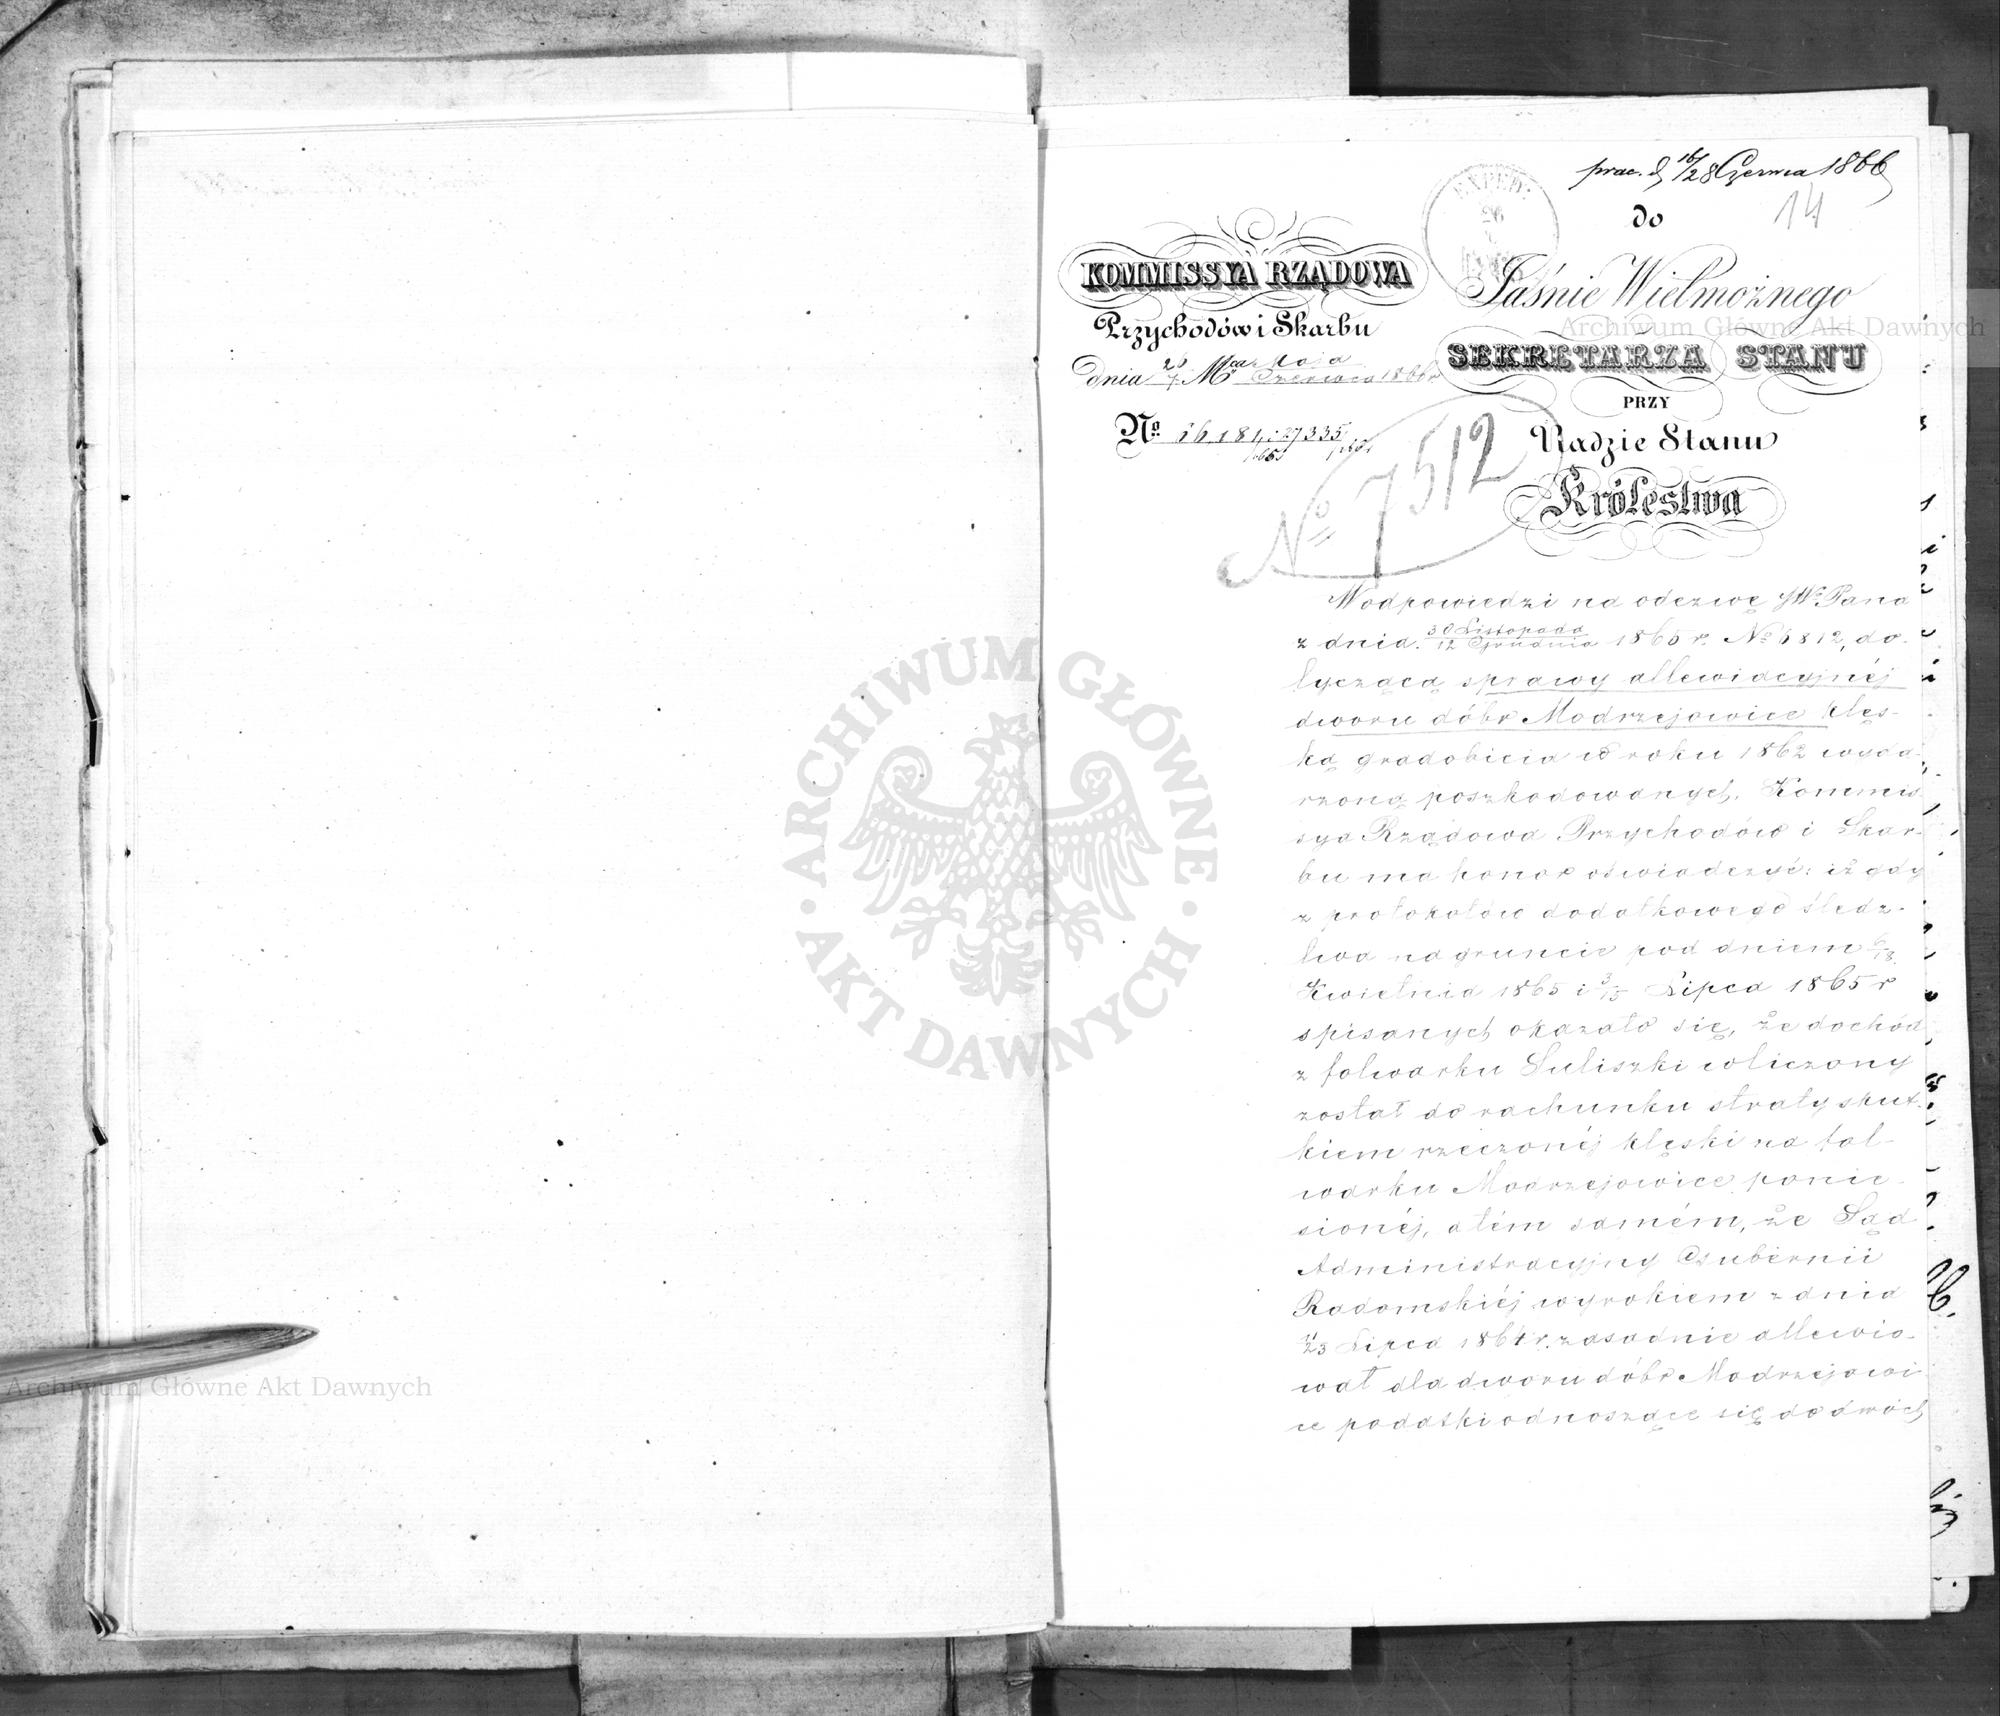 prac. d. 16/28 Czerwca 1866
14
do
Jaśnie Wielmożnego
SEKRETARZA STANU
PRZY
Radzie Stanu
Królestwa
EXPED:
26
KOMMISSYA RZĄDOWA
Przychodów i Skarbu
dnia 26/7 Mca Maja/Czerwca 1866 r
No. 16,181/865 i 27335
No 7512
W odpowiedzi na odezwę JW. Pana
z dnia 30 Listopada/12 Grudnia 1865 r. No 6812, do-
tyczącą sprawy allewiacyjnéj
dworu dóbr Modrzejowice klęs-
ką gradobicia w roku 1862 wyda-
rzoną poszkodowanych, Kommis
sya Rządowa Przychodów i Skar-
bu ma honor oświadczyć: iż gdy
z protokołów dodatkowego śledz-
twa na gruncie pod dniem 6/18
Kwietnia 1865 i 3/15 Lipca 1865 r
spisanych okazało się, że dochód
z folwarku Suliszki wliczony
został do rachunku straty skut-
kiem rzeczonéj klęski na fol-
warku Modrzejowice ponie-
sionéj, a tém samém, że Sąd
Administracyjny Gubernii
Radomskiéj wyrokiem z dnia
11/23 Lipca 1864 r. zasadnie allewio-
wał dla dworu dóbr Modrzejowi-
ce podatki odnoszące się do dwóch
Archiwum Główne Akt Dawnych
Archiwum Główne Akt Dawnych
ARCHIWUM GŁÓWNE · AKT DAWNYCH ·